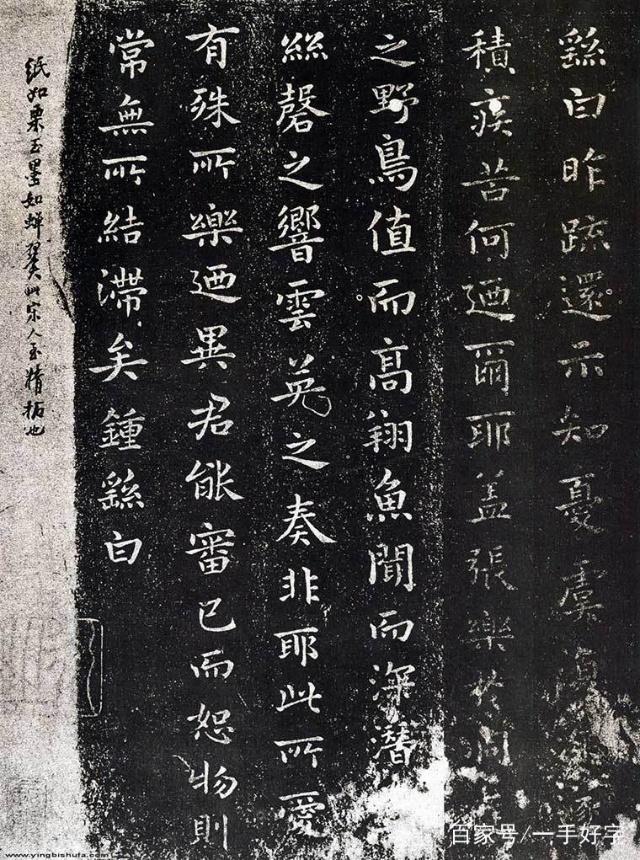 繇白昨疏還示知憂虞復深遂
積疾苦何迺爾耶盖張樂於洞
之野鳥值而高翔魚聞而深潛
絲磬之響雲英之奏非耶此所愛
有殊所樂迺異君能審己而恕物則
常無所結滯矣鍾繇白
紙如栗玉墨如蟬翼此宋人至精拓也
www.yingbishufa.com
百家号/一手好字